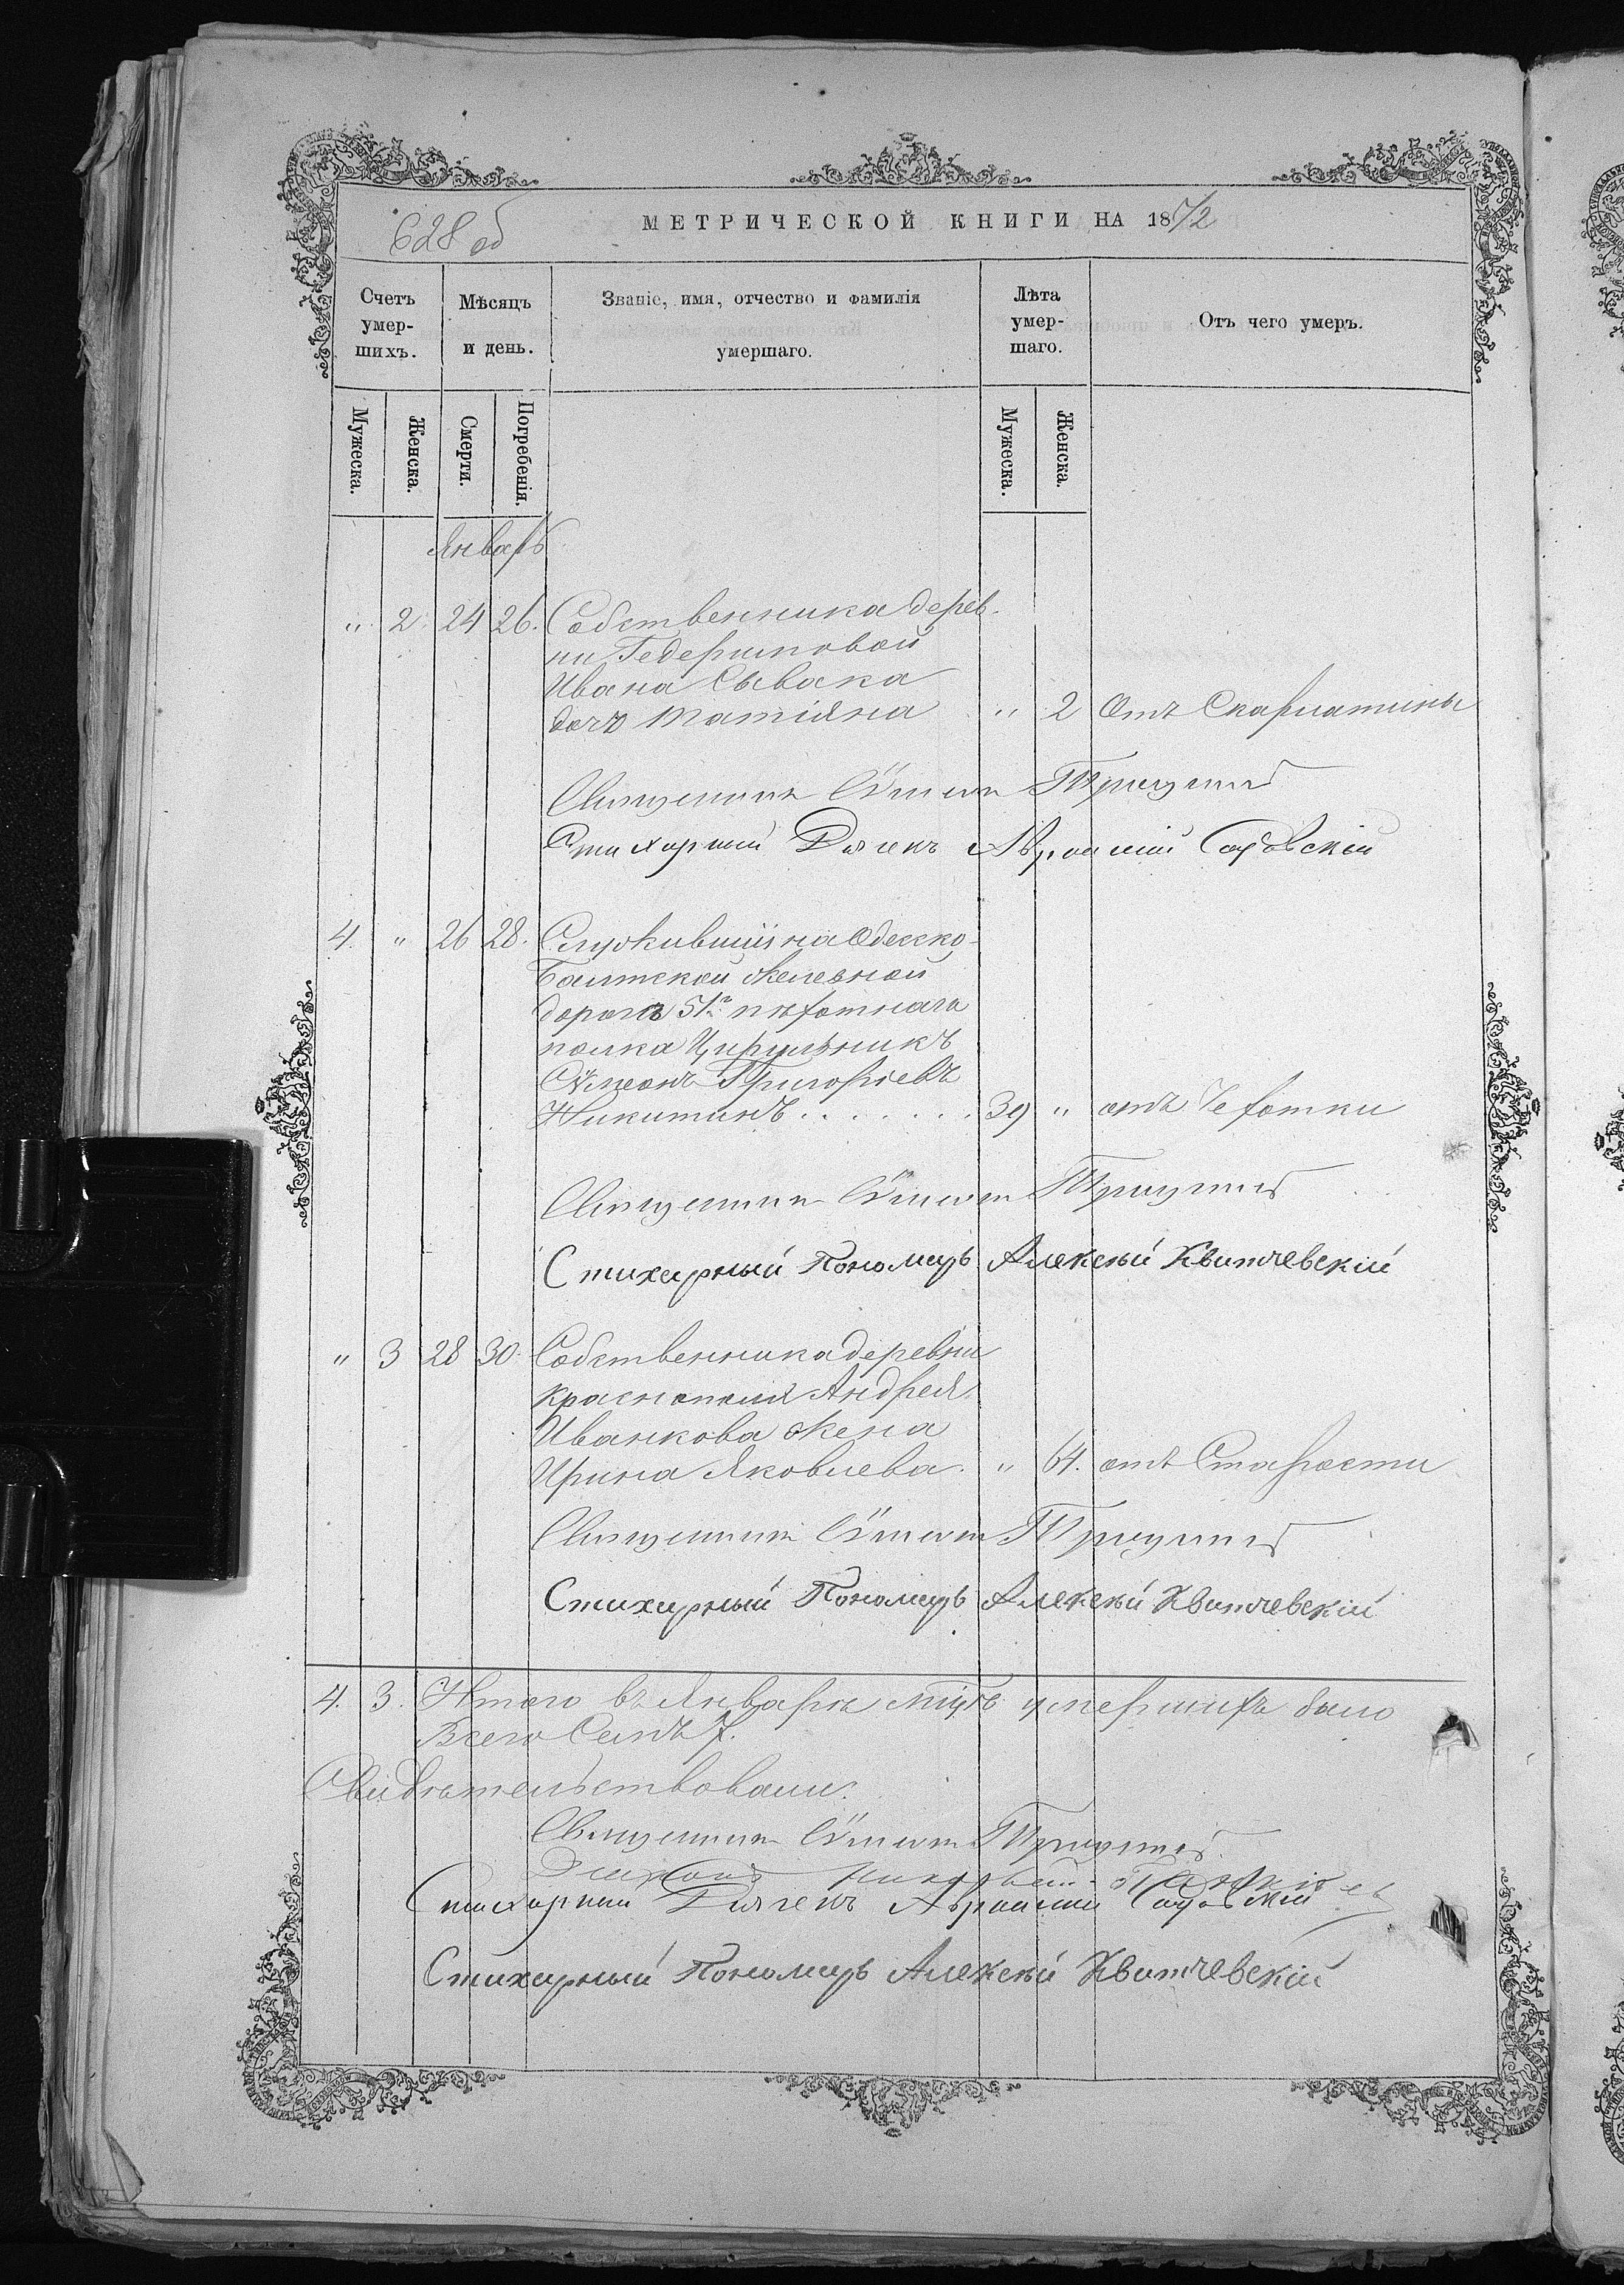 628 об
МЕТРИЧЕСКОЙ КНИГИ НА 1872
Счетъ умершихъ.
Мѣсяцъ и день.
Званіе, имя, отчество и фамилія умершаго.
Лѣта умершаго.
Отъ чего умеръ.
Мужеска.
Женска.
Смерти.
Погребенія.
Мужеска.
Женска.
Январь
" 2. 24 26. Собственника дерев-
ни Гедеримовой
Ивана Сывака
дочь Татіяна " 2 Отъ Скарлатины
Священникъ Сѵмеон
Стихарный Дьячекъ Авраамій Садовскій
4. " 26 28. Служившій на Одесско-
Балтской железной
дорогѣ 51го пѣхотнаго
полка Цирульникъ
Сѵмеонъ Григорьевъ
Никитинъ . . . . . . . 39 " отъ Чехотки
Священникъ Сѵмеон
Стихарный Пономарь Алексѣй Квитчевскій
" 3 28 30. Собственника деревни
Краснополя Андрея
Иванкова жена
Ирина Яковлева. " 64. отъ Старости
Священникъ Сѵмеон
Стихарный Пономарь Алексѣй Квитчевскій
4. 3. Итого въ Январѣ мцѣ умершихъ было
Всего Семь 7.
Свидѣтельствовали:
Священникъ Сѵмеон
Стихарный Дьячекъ Авраамій Садовскій
Стихарный Пономарь Алексѣй Квитчевскій